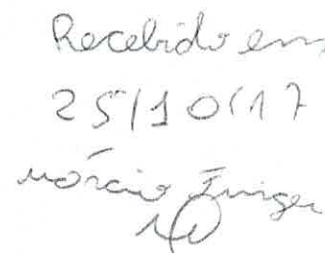 Recebido em
25/10/17
Márcio